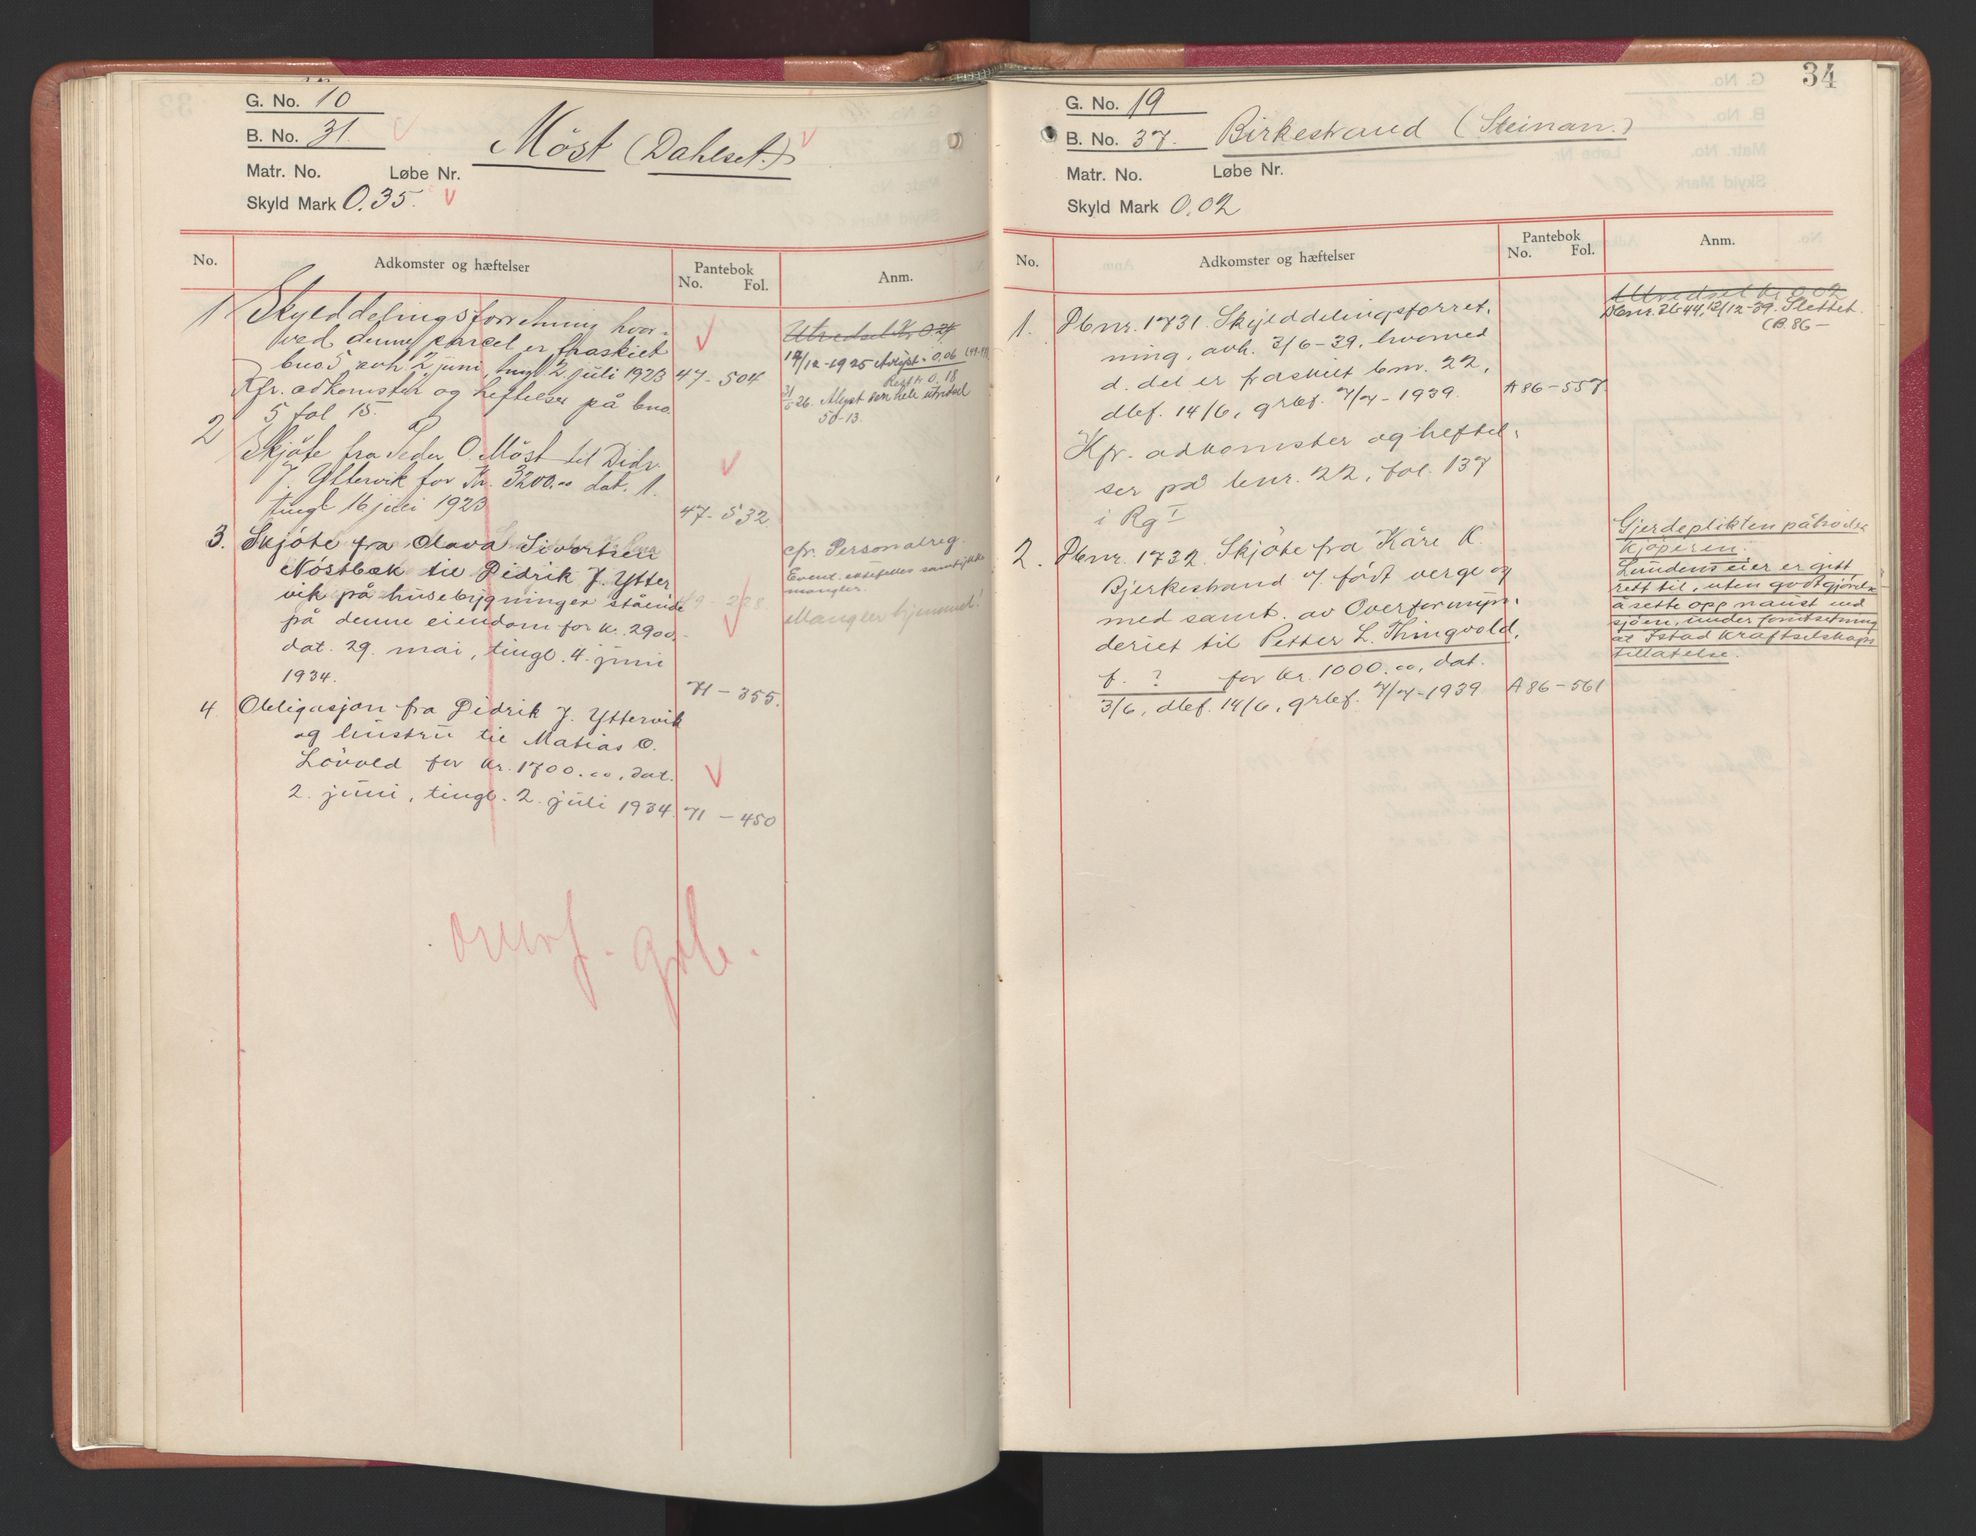 G. No. 10
B. No. 31.
Møst (Dahlset.)
Matr. No. Løbe Nr.
Skyld Mark 0.35.
No. Adkomster og hæftelser Pantebok No. Fol. Anm.
1 Skylddelingsforretning hvor-
ved denne parcel er fraskilt
bno 5 avh. 2 juni, tingl 2. juli 1923 47-504
Kfr. adkomster og heftelser på bno.
5 fol 15.
Utredsel Kr. 0.24
17/12-1925 Avløst 0,06
Rest 0.18
31/5 26. Avløst den hele utredsel
50-13.
2 Skjøte fra Peder O. Møst til Didr.
J. Yttervik for Kr. 3200.00 dat. 1.
tingl 16 juli 1923 47-532
3. Skjøte fra Olava Sivertsen
Nøstbæk til Didrik J. Ytter
vik på husebygninger stående 49-228
på denne eiendom for kr. 2900,-
dat. 29. mai, tingl. 4. juni
1934. 71-355.
cfr. Personalreg.
Event. ektefelles samtykke
mangler.
Mangler hjemmel!
4 Obligasjon fra Didrik J. Yttervik
og hustru til Matias O.
Løvold for kr. 1700.00, dat.
2. juni, tingl. 2. juli 1934. 71-450
overf. grb.
34
G. No. 19
B. No. 37. Birkestrand (Steinan.)
Matr. No. Løbe Nr.
Skyld Mark 0,02
No. Adkomster og hæftelser Pantebok No. Fol. Anm.
1. Dbnr. 1731. Skylddelingsforret-
ning, avh. 3/6-39, hvorved
d. del er fraskilt bnr. 22,
dbf. 14/6, grbf. 7/7-1939. A 86-557.
Kfr. adkomster og heftel-
ser på bnr. 22, fol. 137
i Rg I
Utredsel kr. 0,02
Dbnr. 3644, 12/12-39. Slettet.
(B. 86-
2. Dbnr. 1732. Skjøte fra Kåre K.
Bjerkestrand v/ født verge og
med samt. av Overformyn-
deriet til Petter L. Thingvold,
f. ? for kr. 1000.00, dat.
3/6, dbf. 14/6, grbf. 7/7-1939 A 86-561
Gjerdeplikten påhviler
kjøperen.
Lundens eier er gitt
rett til, uten godtgjørelse
å sette opp naust ved
sjøen, under forutsetning
at Istad Kraftselskaps
tillatelse.